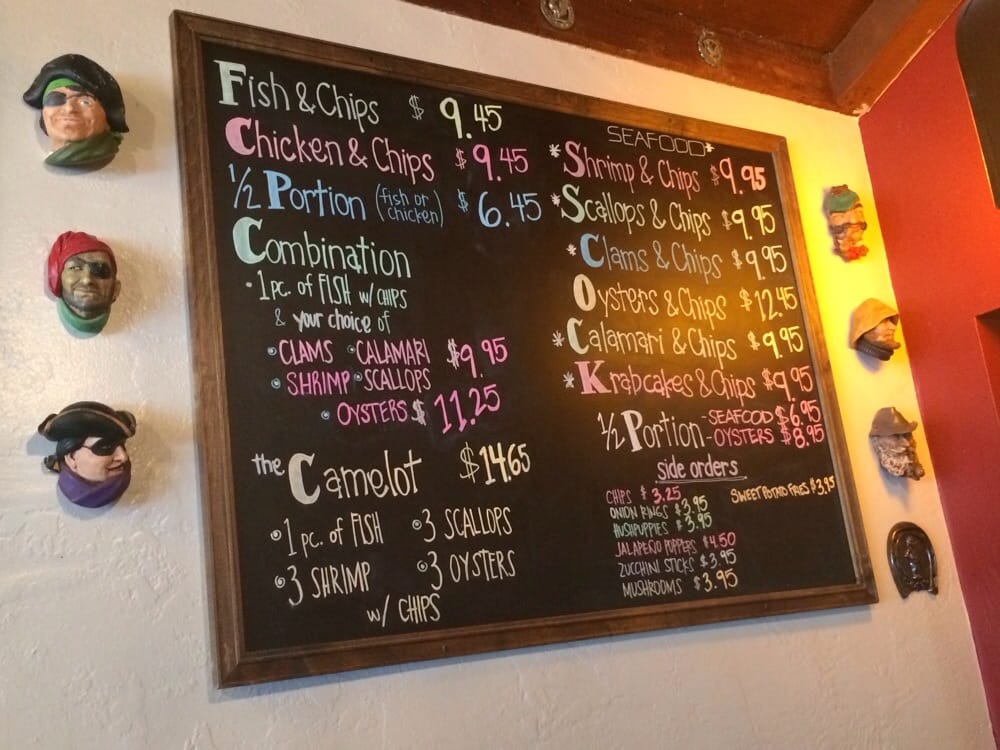 Fish & Chips $ 9.45
Chicken & Chips $ 9.45
1/2 Portion (fish or chicken) $ 6.45
Combination
• 1 pc. of FISH w/ CHIPS
& your choice of
• CLAMS • CALAMARI $9.95
• SHRIMP • SCALLOPS
• OYSTERS $ 11.25
the Camelot $14.65
• 1 pc. of FISH • 3 SCALLOPS
• 3 SHRIMP • 3 OYSTERS
w/ CHIPS
SEAFOOD*
*Shrimp & Chips $9.95
*Scallops & Chips $9.95
*Clams & Chips $9.95
Oysters & Chips $12.45
*Calamari & Chips $9.95
*Krabcakes & Chips $9.95
1/2 Portion -SEAFOOD $6.95
-OYSTERS $8.95
side orders
CHIPS $3.25 SWEET POTATO FRIES $3.95
ONION RINGS $3.95
HUSHPUPPIES $3.95
JALAPEÑO POPPERS $4.50
ZUCCHINI STICKS $3.95
MUSHROOMS $3.95